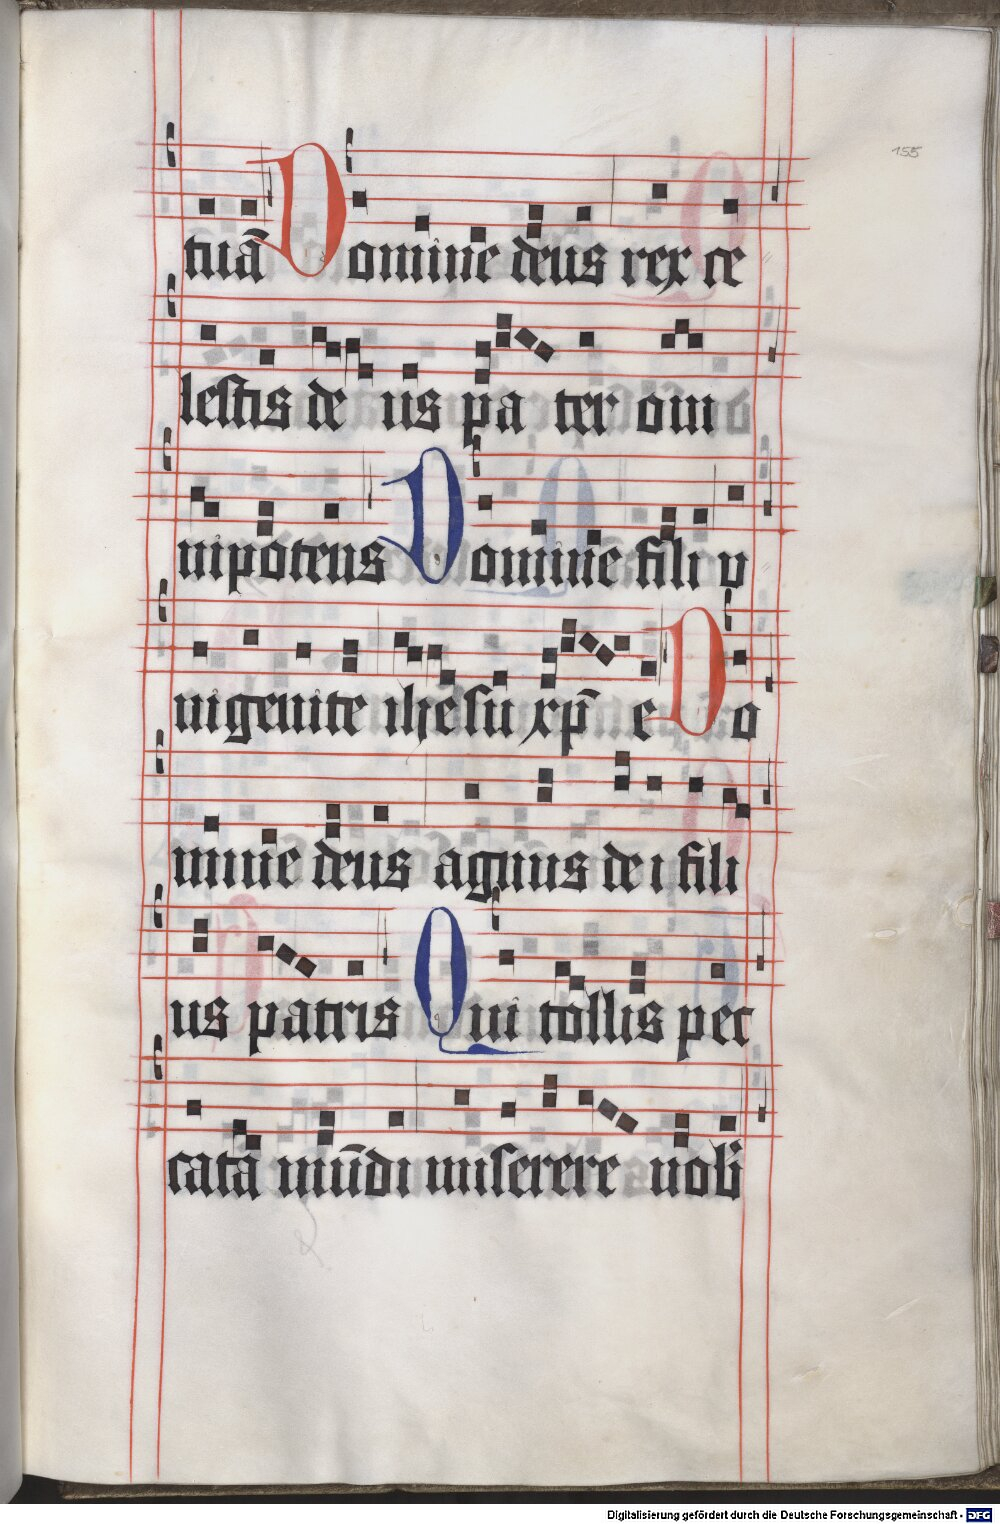 155
tuā Domine deus rex ce
lestis de us pa ter om
nipotens Domine fili v
nigenite ihesu xp̄ e Do
mine deus agnus dei fili
us patris Qui tollis pec
cata mūdi miserere nob
Digitalisierung gefördert durch die Deutsche Forschungsgemeinschaft - DFG